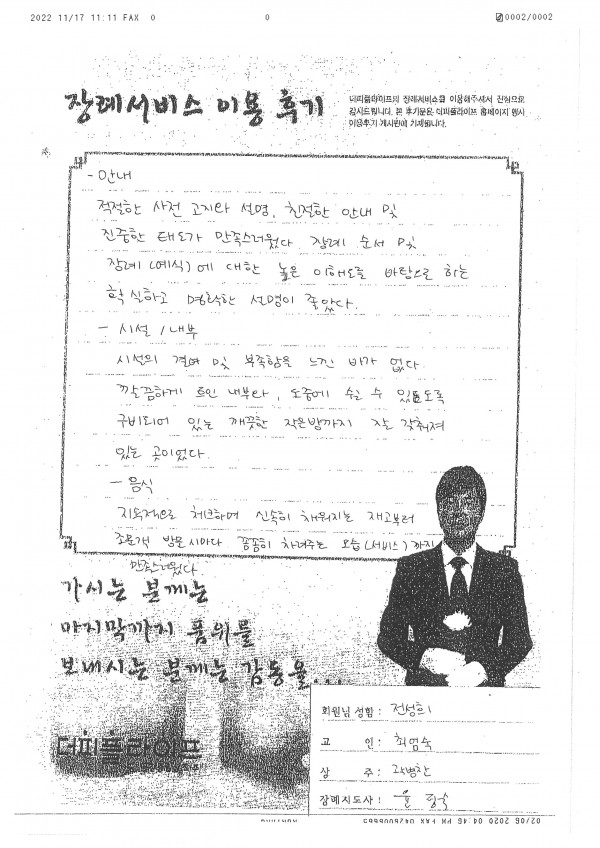 2022 11/17 11:11 FAX 0 0 0002/0002
장례서비스 이용 후기
더피플라이프의 장례서비스를 이용해주셔서 진심으로
감사드립니다. 본 후기문은 더피플라이프 홈페이지 행사
이용후기 게시판에 기재됩니다.
- 안내
적절한 사전 고지와 설명, 친절한 안내 및
진중한 태도가 만족스러웠다. 장례 순서 및
장례(예식)에 대한 높은 이해도를 바탕으로 하는
확실하고 명확한 설명이 좋았다.
- 시설 / 내부
시설의 결여 및 부족함을 느낀 바가 없다.
깔끔하게 트인 내부와, 도중에 쉴 수 있도록
구비되어 있는 깨끗한 작은방까지 잘 갖춰져
있는 곳이었다.
- 음식
지속적으로 체크하며 신속히 채워지는 재고부터
조문객 방문시마다 꼼꼼히 차려주는 모습(서비스)까지
만족스러웠다
가시는 분께는
마지막까지 품위를
보내시는 분께는 감동을...
더피플라이프
회원님 성함 : 전성희
고 인 : 최엄숙
상 주 : 곽병찬
장례지도사 : 윤 형숙
02/06 2020 04:46 PM FAX